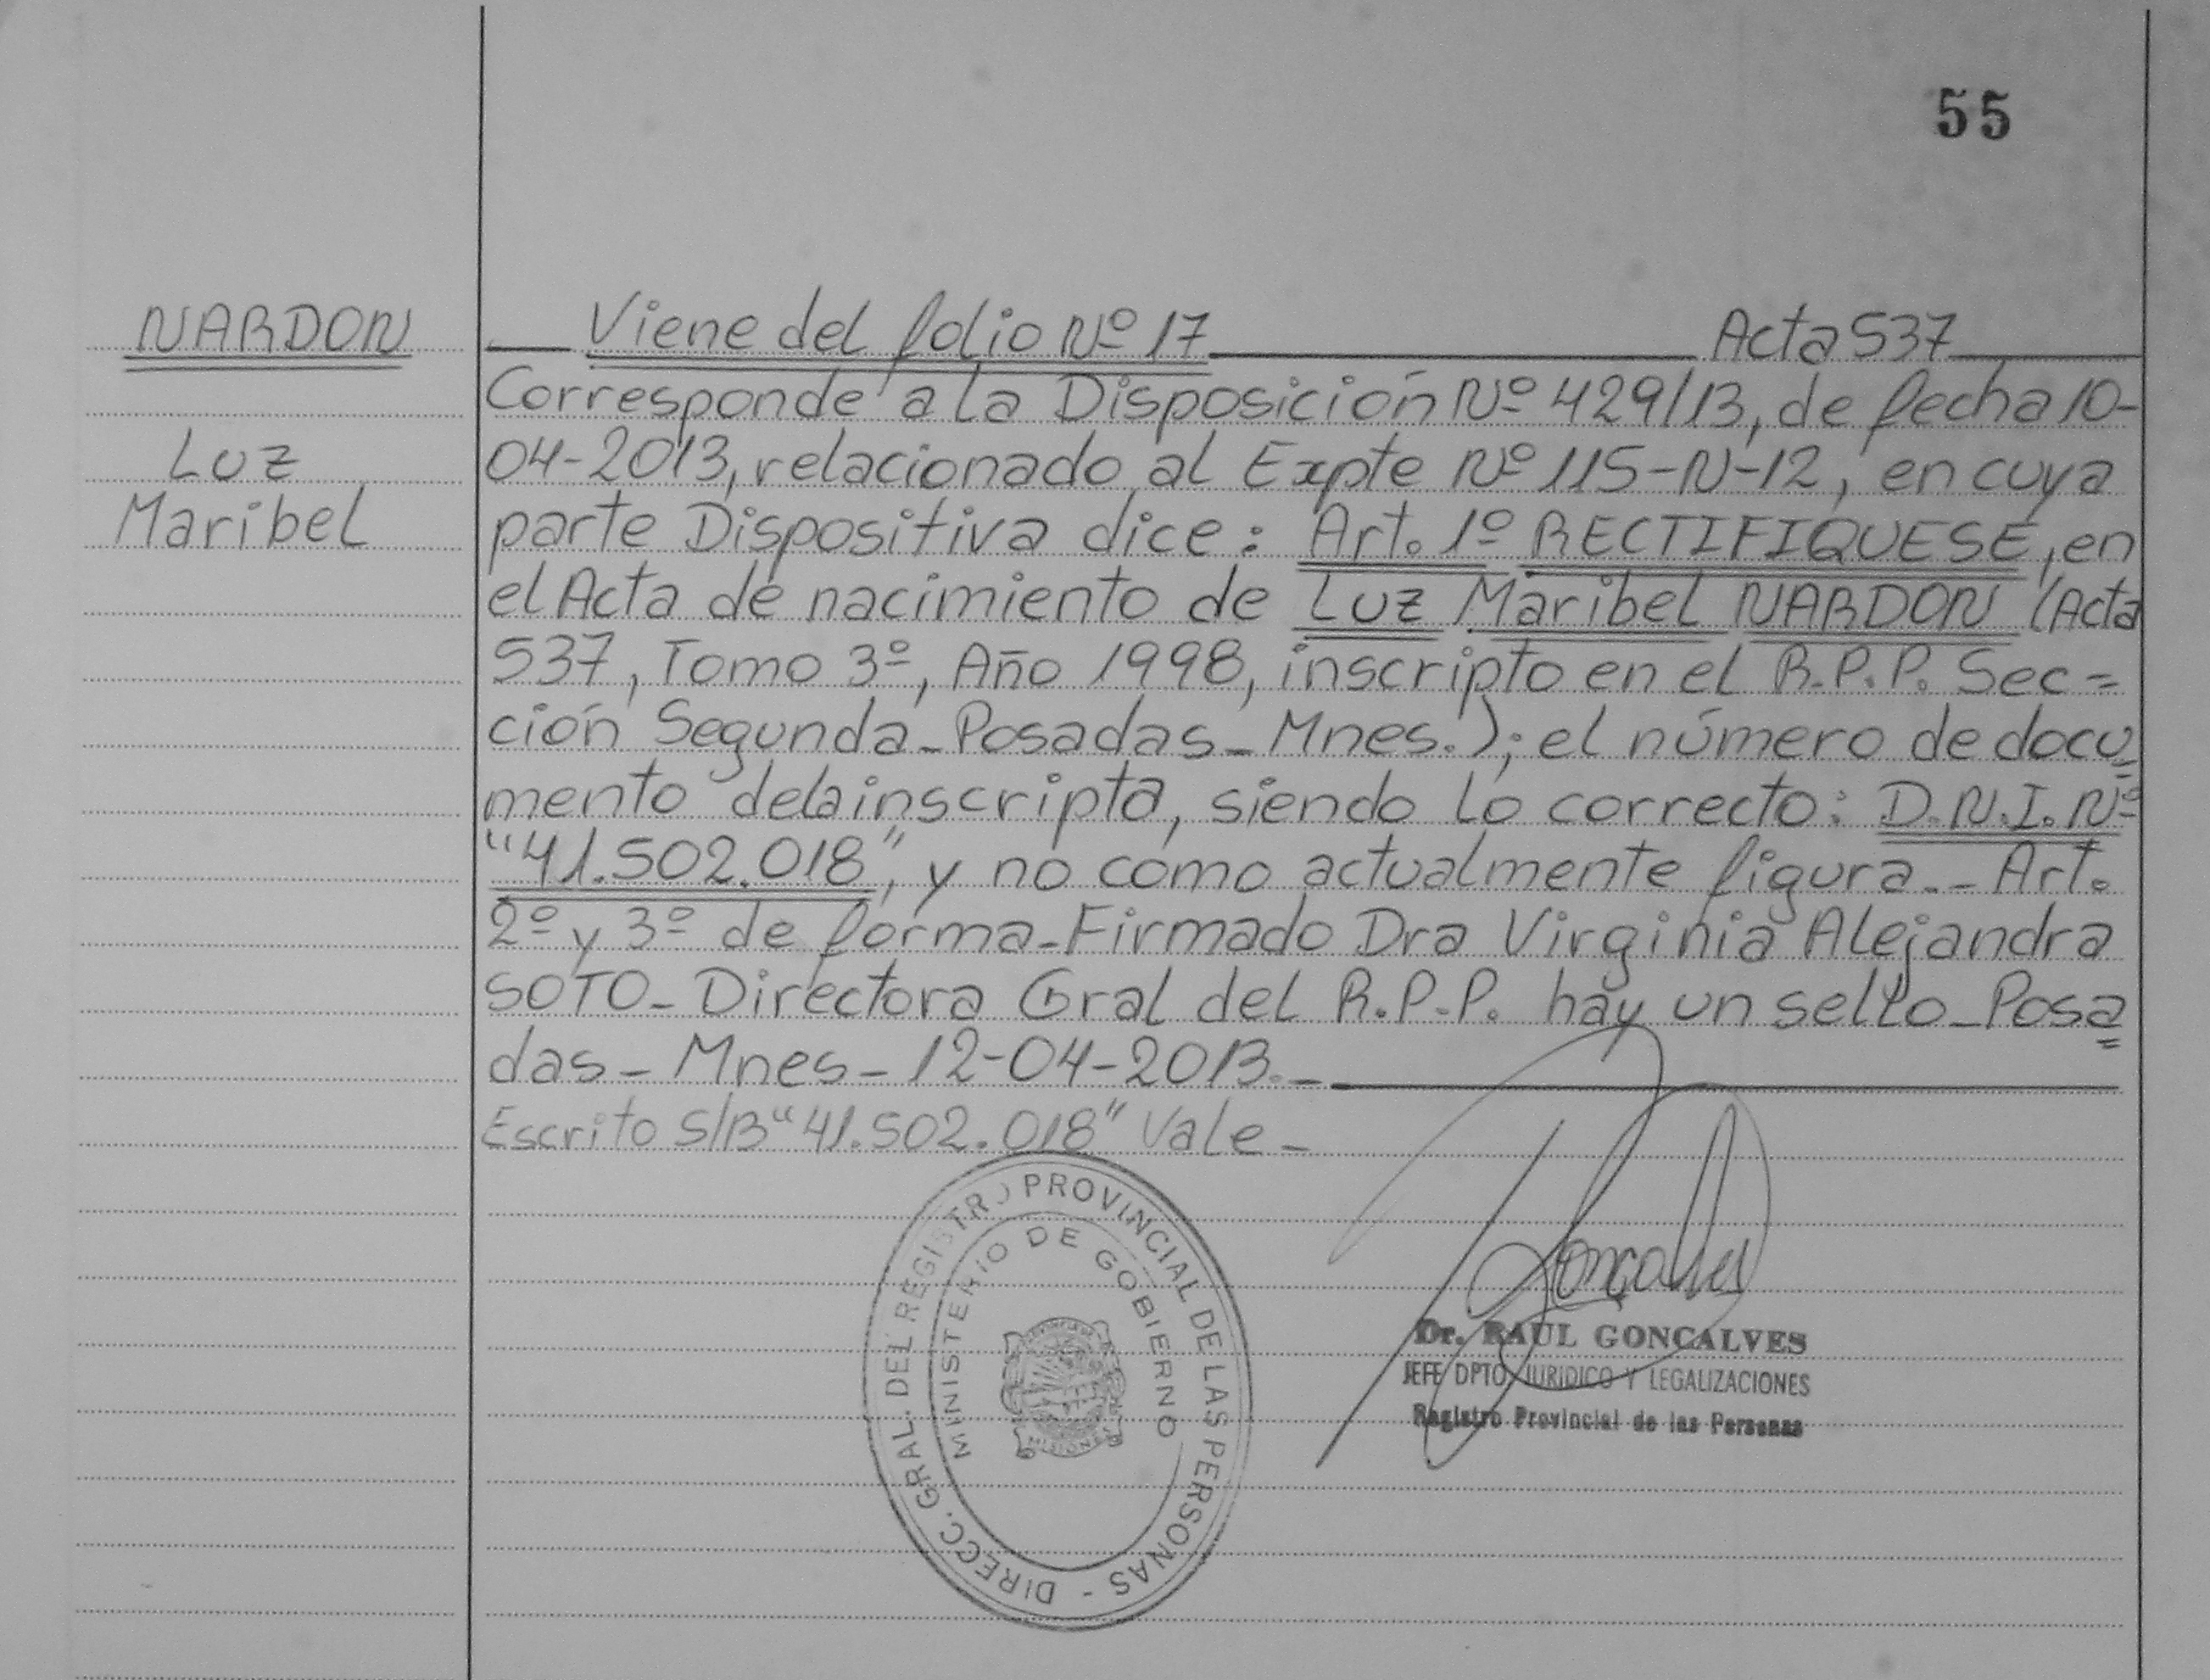 55
NARDON
Luz
Maribel
Viene del folio Nº 17 Acta 537
Corresponde a la Disposición Nº 429/13, de fecha 10-
04-2013, relacionado al Expte Nº 115-N-12, en cuya
parte Dispositiva dice: Art. 1º RECTIFIQUESE, en
el Acta de nacimiento de Luz Maribel NARDON (Acta
537, Tomo 3º, Año 1998, inscripto en el R.P.P. Sec=
ción Segunda_Posadas_Mnes.); el número de docu
mento dela inscripta, siendo lo correcto: D.N.I. Nº
"41.502.018", y no como actualmente figura._ Art.
2º y 3º de forma_Firmado Dra Virginia Alejandra
SOTO_Directora Gral del R.P.P. hay un sello_Posa
das_Mnes_12-04-2013._
Escrito S/B "41.502.018" Vale_
DIRECC. GRAL. DEL REGISTRO PROVINCIAL DE LAS PERSONAS -
MINISTERIO DE GOBIERNO
MISIONES
Goncalves
Dr. RAUL GONCALVES
JEFE DPTO. JURIDICO Y LEGALIZACIONES
Registro Provincial de las Personas